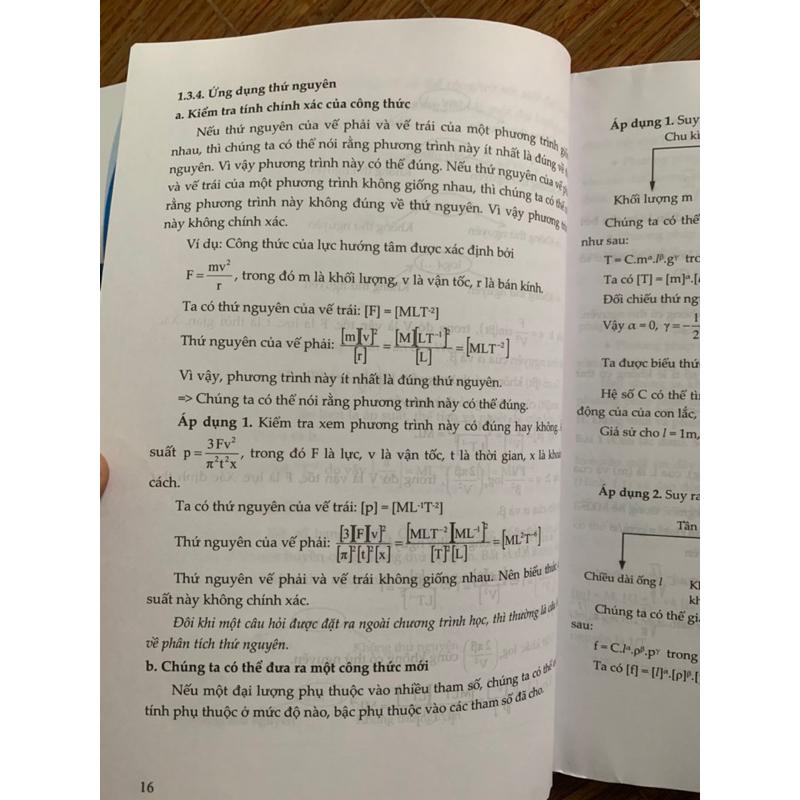 1.3.4. Ứng dụng thứ nguyên
a. Kiểm tra tính chính xác của công thức
Nếu thứ nguyên của vế phải và vế trái của một phương trình
nhau, thì chúng ta có thể nói rằng phương trình này ít nhất là đúng về
nguyên. Vì vậy phương trình này có thể đúng. Nếu thứ nguyên của vế
và vế trái của một phương trình không giống nhau, thì chúng ta có thể
rằng phương trình này không đúng về thứ nguyên. Vì vậy phương
này không chính xác.
Ví dụ: Công thức của lực hướng tâm được xác định bởi
F = mv²/r, trong đó m là khối lượng, v là vận tốc, r là bán kính.
Ta có thứ nguyên của vế trái: [F] = [MLT⁻²]
Thứ nguyên của vế phải: [m][v]²/[r] = [M][LT⁻¹]²/[L] = [MLT⁻²]
Vì vậy, phương trình này ít nhất là đúng thứ nguyên.
=> Chúng ta có thể nói rằng phương trình này có thể đúng.
Áp dụng 1. Kiểm tra xem phương trình này có đúng hay không
suất p = 3Fv²/π²t²x, trong đó F là lực, v là vận tốc, t là thời gian, x là
cách.
Ta có thứ nguyên của vế trái: [p] = [ML⁻¹T⁻²]
Thứ nguyên của vế phải: [3][F][v]²/[π]²[t]²[x] = [MLT⁻²][ML⁻¹]²/[T]²[L] = [ML²T⁻⁶]
Thứ nguyên vế phải và vế trái không giống nhau. Nên biểu thức
suất này không chính xác.
Đôi khi một câu hỏi được đặt ra ngoài chương trình học, thì thường là câu
về phân tích thứ nguyên.
b. Chúng ta có thể đưa ra một công thức mới
Nếu một đại lượng phụ thuộc vào nhiều tham số, chúng ta có thể
tính phụ thuộc ở mức độ nào, bậc phụ thuộc vào các tham số đã cho.
16
Áp dụng 1. Suy
Chu kì
Khối lượng m
Chúng ta có thể
như sau:
T = C.mᵅ.lᵝ.gᵞ
Ta có [T] = [m]ᵅ.
Đối chiếu thứ
Vậy α = 0, γ = −1/2
Ta được biểu thức
Hệ số C có thể
động của của con lắc,
Giả sử cho l = 1m,
Áp dụng 2. Suy ra
Tần
Chiều dài ống l
Chúng ta có thể
sau:
f = C.lᵅ.ρᵝ.pᵞ trong
Ta có [f] = [l]ᵅ.[ρ]ᵝ.